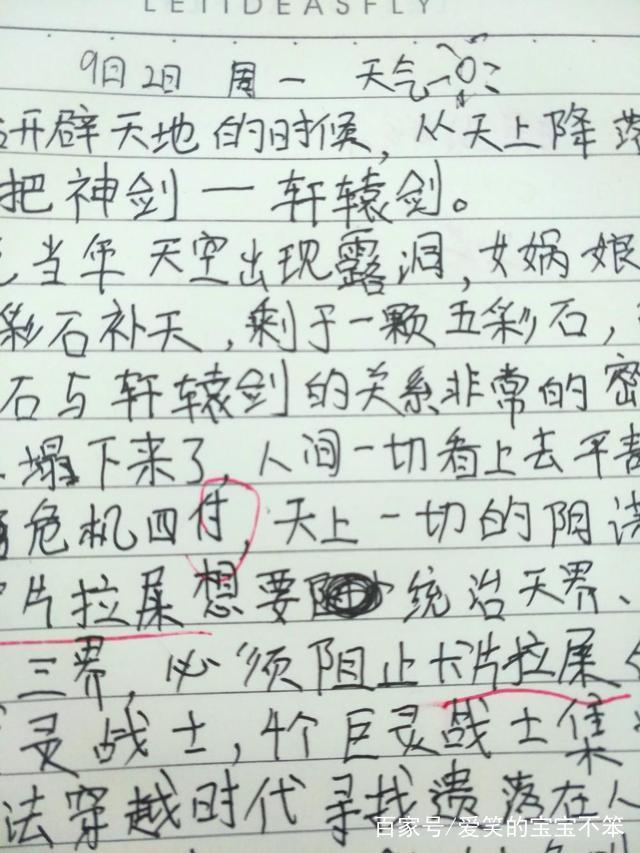 LEIIDEASFLY
9日2日 周一 天气
开辟天地的时候,从天上降落
把神剑一轩辕剑。
当年天空出现露洞,女娲娘
彩石补天,剩于一颗五彩石,
石与轩辕剑的关系非常的密
塌下来了,人间一切看上去平
危机四付,天上一切的阴
片拉屎想要 统治天界、
三界,必须阻止卡片拉屎
灵战士,4个巨灵战士集
法穿越时代寻找遗落在人
百家号/爱笑的宝宝不笨